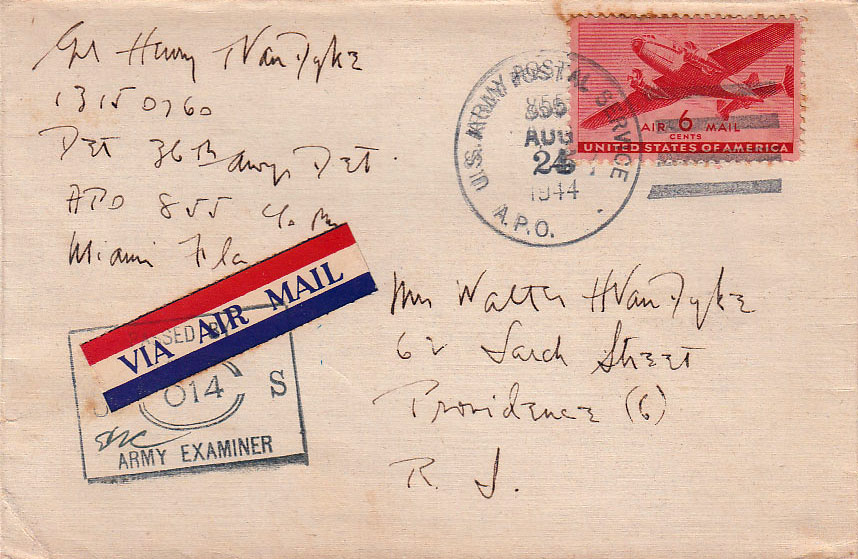 Cpl Henry VanDyke
13150760
Det 36th Det.
APO 855 c/o Pm
Miami Fla
U.S. ARMY POSTAL SERVICE
855
AUG
24
1944
A.P.O.
AIR 6 MAIL
CENTS
UNITED STATES OF AMERICA
VIA AIR MAIL
PASSED BY
014 S
ARMY EXAMINER
Mrs Walter H VanDyke
62 Street
Providence (6)
R. I.